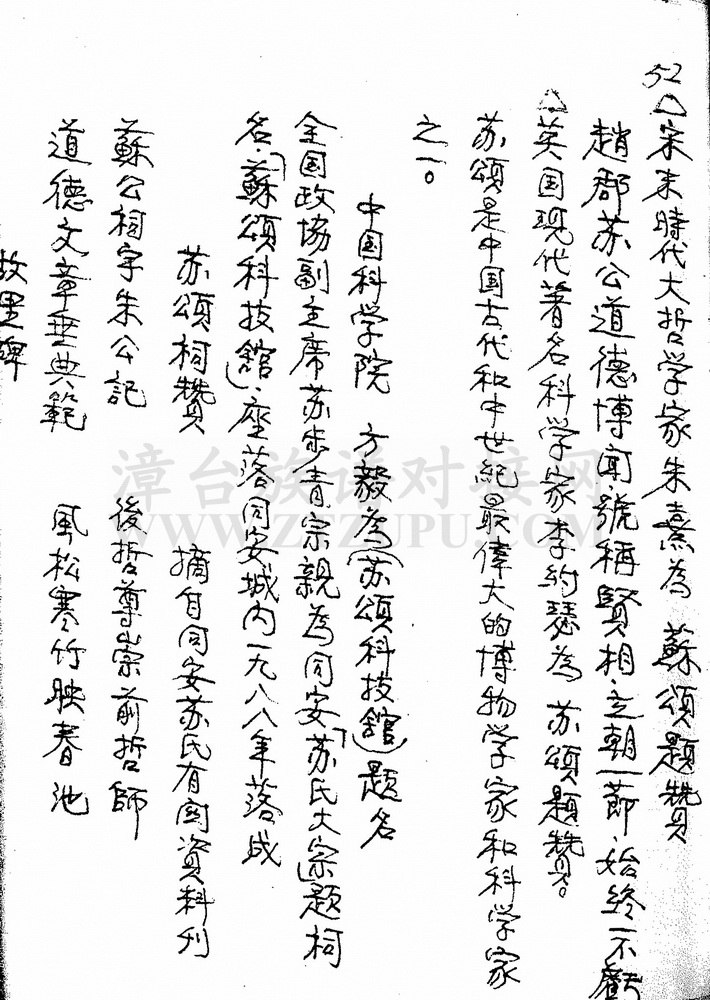 52
△宋末時代大哲学家朱熹為 蘇頌題贊
趙郡苏公道德博闻、號稱賢相、立朝一節、始終不虧
△英国現代著名科学家李約瑟為 苏頌題贊。
苏頌是中国古代和中世紀最偉大的博物学家和科学家
之一。
中国科学院 方毅為「苏頌科技館」題名
全国政協副主席苏步青宗親為同安「苏氏大宗」題祠
名、「蘇頌科技館」、座落同安城内一九八八年落成
苏頌祠贊 摘自同安苏氏有関資料刊
蘇公祠宇朱公記 後哲尊崇前哲師
道德文章垂典範 風松寒竹映春池
故里碑
漳台族谱对接网
WWW.ZTZUPU.COM